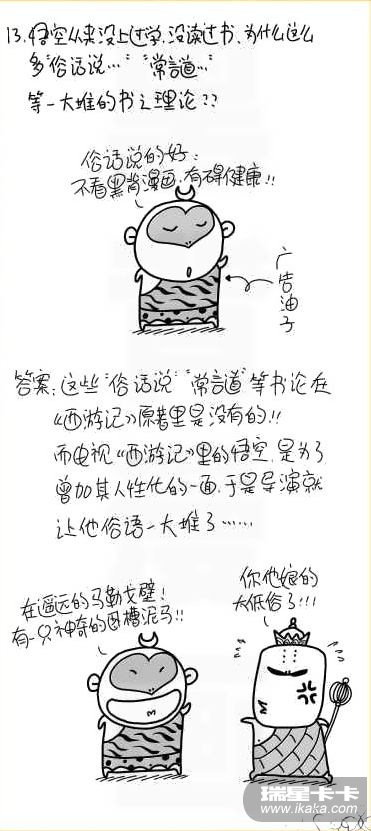 13.悟空从来没上过学、没读过书、为什么这么
多"俗话说…""常言道…"
等一大堆的书之理论??
俗话说的好:
不看黑背漫画,有碍健康!!
广告油子
答案:这些"俗话说""常言道"等书论在
《西游记》原著里是没有的!!
而电视《西游记》里的悟空,是为了
曾加其人性化的一面,于是导演就
让他俗语一大堆了……
在遥远的马勒戈壁!
有一只神奇的草槽泥马!!
你他娘的
太低俗了!!!
瑞星卡卡
www.ikaka.com